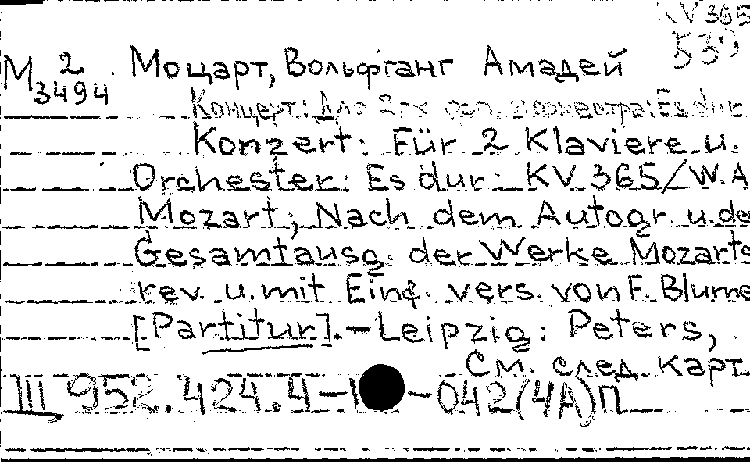 KV 365
539
М 2 Моцарт, Вольфганг Амадей
3494
Концерт: Для 2-х фп. с оркестра: Es dur
Konzert: Für 2 Klaviere u.
Orchester: Es dur: KV 365/W.A
Mozart; Nach dem Autogr. u. de
Gesamtausg. der Werke Mozarts
rev. u. mit Eing. vers. von F. Blume
[Partitur]. – Leipzig: Peters,
См. след. карт
III 952.424.4 – – 042(4А)П